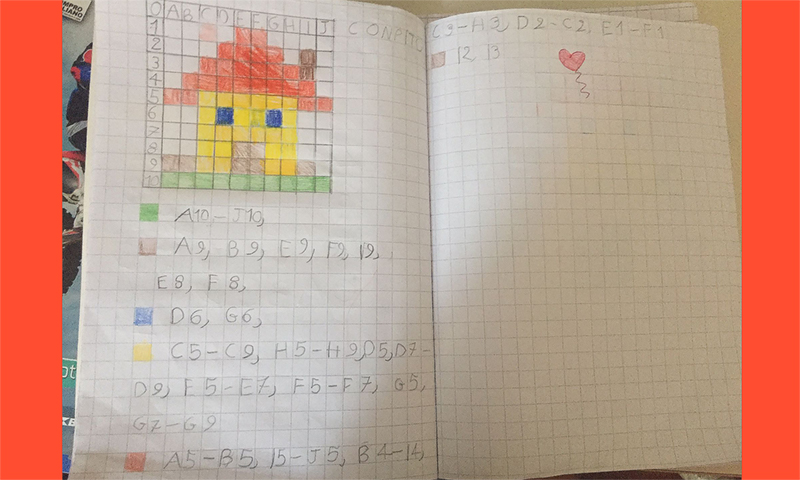 MPRO
LIANO
0 A B C D E F G H I J
1
2
3
4
5
6
7
8
9
10
CONPITO
A10-J10,
A9, B9, E9, F9, I9,
E8, F8,
D6, G6,
C5-C9, H5-H9, D5, D7-
D9, E5-E7, F5-F7, G5,
G7-G9
A5-B5, I5-J5, B4-I4,
C3-H3, D2-C2, E1-F1
I2 I3
ot